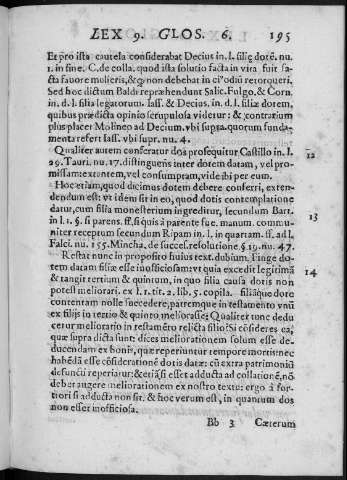 LEX 9. GLOS. 6. 195
Et pro ista cautela considerabat Decius in. l. filię dotẽ. nu.
1. in fine. C. de colla. quod ista solutio facta in vita fuit fa-
cta fauore mulieris, & ꝙ non debebat in ei' odiũ retorqueri.
Sed hoc dictum Baldi repræhendunt Salic. Fulgo, & Corn.
in. d. l. filia legatorum. Iass. & Decius. in. d. l. filiæ dorem,
quibus prædicta opinio scrupulosa videtur: & contratium
plus placer Molineo ad Decium. vbi supra. quorum funda-
menta refert Iass. vbi supr. nu. 4.
Qualiter autem conferatur dos prosequitur Castillo in. l.
29. Tauri. nu. 17. distinguens inter dotem datam, vel pro-
missam: extantem, vel consumpram, vide ibi per eum.
12
Hoc etiam, quod dicimus dotem debere conferri, exten-
dendum est: vt idem sit in eo, quod dotis contemplatione
datur, cum filia monasterium ingreditur, secundum Bart.
in l. 1. §. si parens. ff. si quis à parente fue. manum. commu-
niter receptum secundum Ripam in. l. in quartam. ff. ad l.
Falci. nu. 155. Mincha. de succes. resolutione §. 19. nu. 47.
13
Restat nunc in proposito huius text. dubium. Finge do-
tem datam filiæ esse inofficiosam: vt quia excedit legitimã
& tangit tertium & quintum, in quo filia causa dotis non
potest meliorari. ex l. 1. tit. 2. lib. 5. copila. filiãque dote
contentam nolle succedere, patremque in testamento vnũ
ex filijs in tertio & quinto meliorasse: Qualiter tunc dedu
cetur melioratio in testamẽto relicta filio? Si cõsideres ea,
quæ supra dicta sunt: dices meliorationem solum esse de-
ducendam ex bonis, quæ reperiuntur tempore mortis: nec
habẽdã esse cõsiderationẽ dotis datæ: cũ extra patrimoniũ
defuncti reperiatur: & etiã si esset adducta ad collationẽ, nõ
deberet augere meliorationem ex nostro textu: ergo à for-
tiori si adducta non sit. & hoc verum est, in quantum dos
non esset inofficiosa.
14
Bb 3 Cæterum